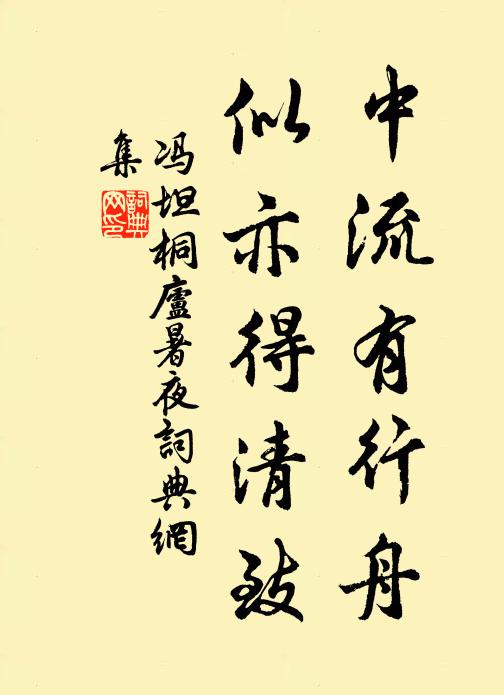 中流有行舟
似亦得清致
冯坦桐廬暑夜詞典網
集
詞典网印